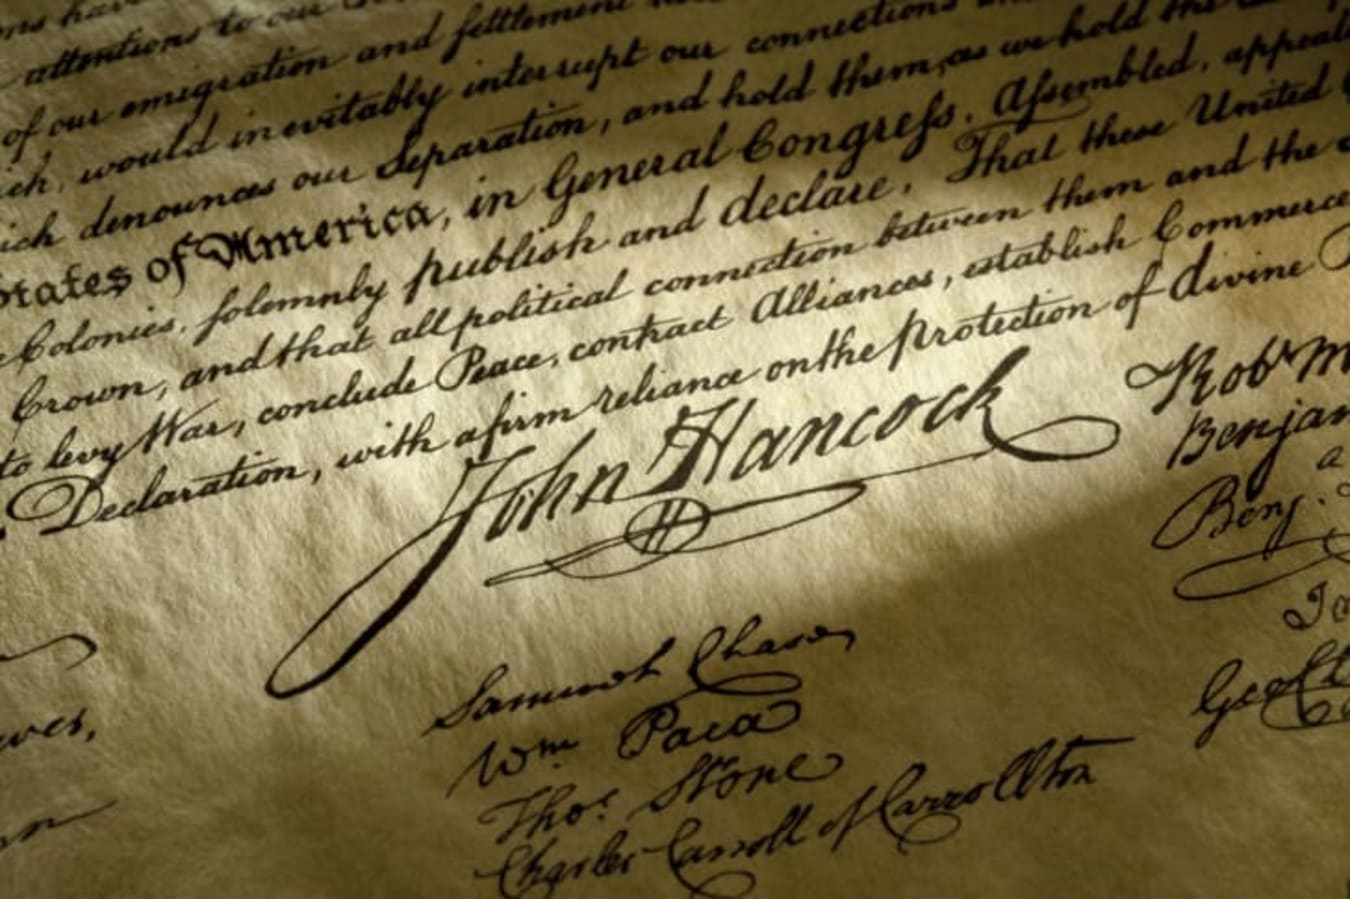 attentions to our
of our emigration and settlement
would inevitably interrupt our connections
denounces our Separation, and hold them, as we hold the
States of America, in General Congress, Assembled, appeal
Colonies, solemnly publish and declare, That these United
Crown, and that all political connection between them and the
to levy War, conclude Peace, contract Alliances, establish Commerce
Declaration, with a firm reliance on the protection of divine
John Hancock
Samuel Chase
Wm. Paca
Thos. Stone
Charles Carroll of Carrollton
Robt M
Benjam
Benj.